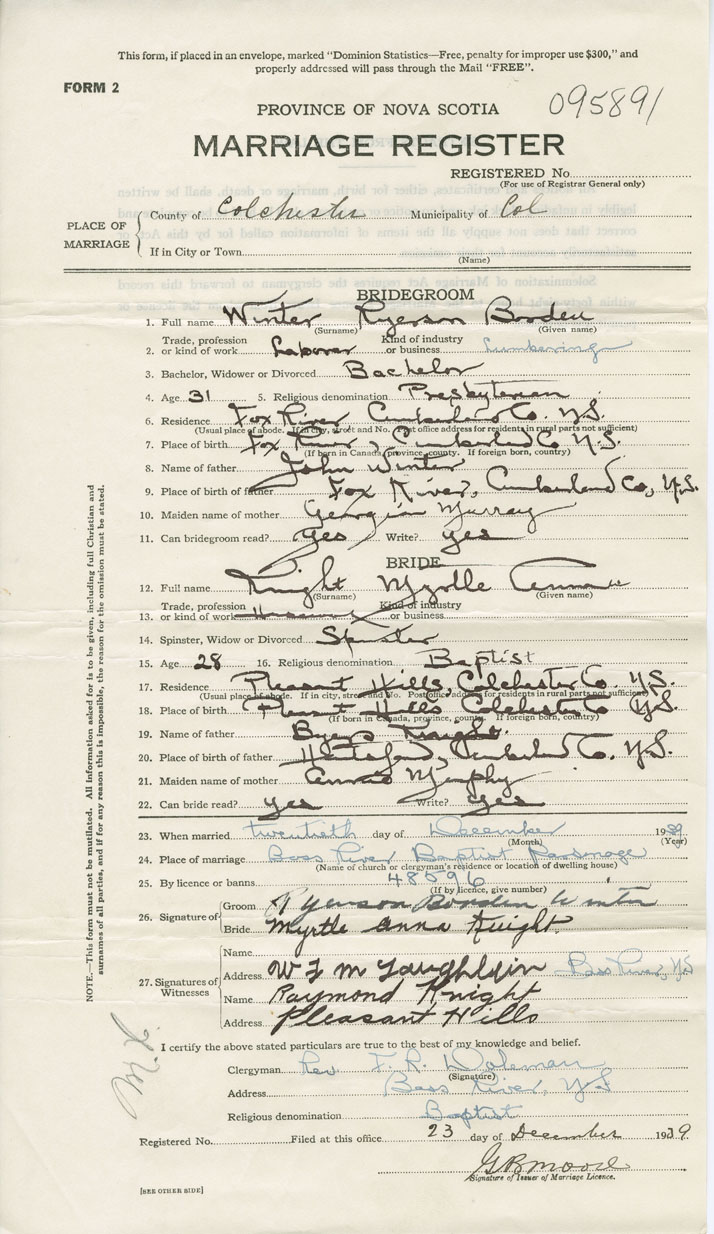 This form, if placed in an envelope, marked "Dominion Statistics—Free, penalty for improper use $300," and
properly addressed will pass through the Mail "FREE".
FORM 2
095891
PROVINCE OF NOVA SCOTIA
MARRIAGE REGISTER
REGISTERED No.
(For use of Registrar General only)
PLACE OF MARRIAGE
County of Colchester Municipality of Col
If in City or Town
(Name)
BRIDEGROOM
1. Full name Winter Ryerson Borden
(Surname) (Given name)
2. Trade, profession or kind of work Laborer Kind of industry or business Lumbering
3. Bachelor, Widower or Divorced Bachelor
4. Age 31 5. Religious denomination Presbyterian
6. Residence Fox River Cumberland Co. N.S.
(Usual place of abode. If in city, street and No. Post office address for residents in rural parts not sufficient)
7. Place of birth Fox River, Cumberland Co N.S.
(If born in Canada, province, county. If foreign born, country)
8. Name of father John Winter
9. Place of birth of father Fox River, Cumberland Co, N.S.
10. Maiden name of mother Georgia Murray
11. Can bridegroom read? yes Write? yes
BRIDE
12. Full name Knight Myrtle Anna
(Surname) (Given name)
13. Trade, profession or kind of work Kind of industry or business
14. Spinster, Widow or Divorced Spinster
15. Age 28 16. Religious denomination Baptist
17. Residence Pleasant Hills, Colchester Co. N.S.
(Usual place of abode. If in city, street and No. Post office address for residents in rural parts not sufficient)
18. Place of birth Pleasant Hills Colchester Co N.S.
(If born in Canada, province, county. If foreign born, country)
19. Name of father Byers Knight.
20. Place of birth of father Cumberland Co. N.S.
21. Maiden name of mother Annie Murphy
22. Can bride read? yes Write? yes
23. When married twentieth day of December 1939
(Month) (Year)
24. Place of marriage Bass River Baptist Parsonage
(Name of church or clergyman's residence or location of dwelling house)
25. By licence or banns 48596
(If by licence, give number)
26. Signature of
Groom Ryerson Borden Winter
Bride Myrtle Anna Knight.
27. Signatures of Witnesses
Name
Address W F McLaughlin Bass River, N.S
Name Raymond Knight
Address Pleasant Hills
I certify the above stated particulars are true to the best of my knowledge and belief.
Clergyman Rev. F. R. Woleman
(Signature)
Address Bass River, N.S
Religious denomination Baptist
Registered No. Filed at this office 23 day of December 1939
G B Mood
Signature of Issuer of Marriage Licence.
[SEE OTHER SIDE]
NOTE.—This form must not be mutilated. All information asked for is to be given, including full Christian and
surnames of all parties, and if for any reason this is impossible, the reason for the omission must be stated.